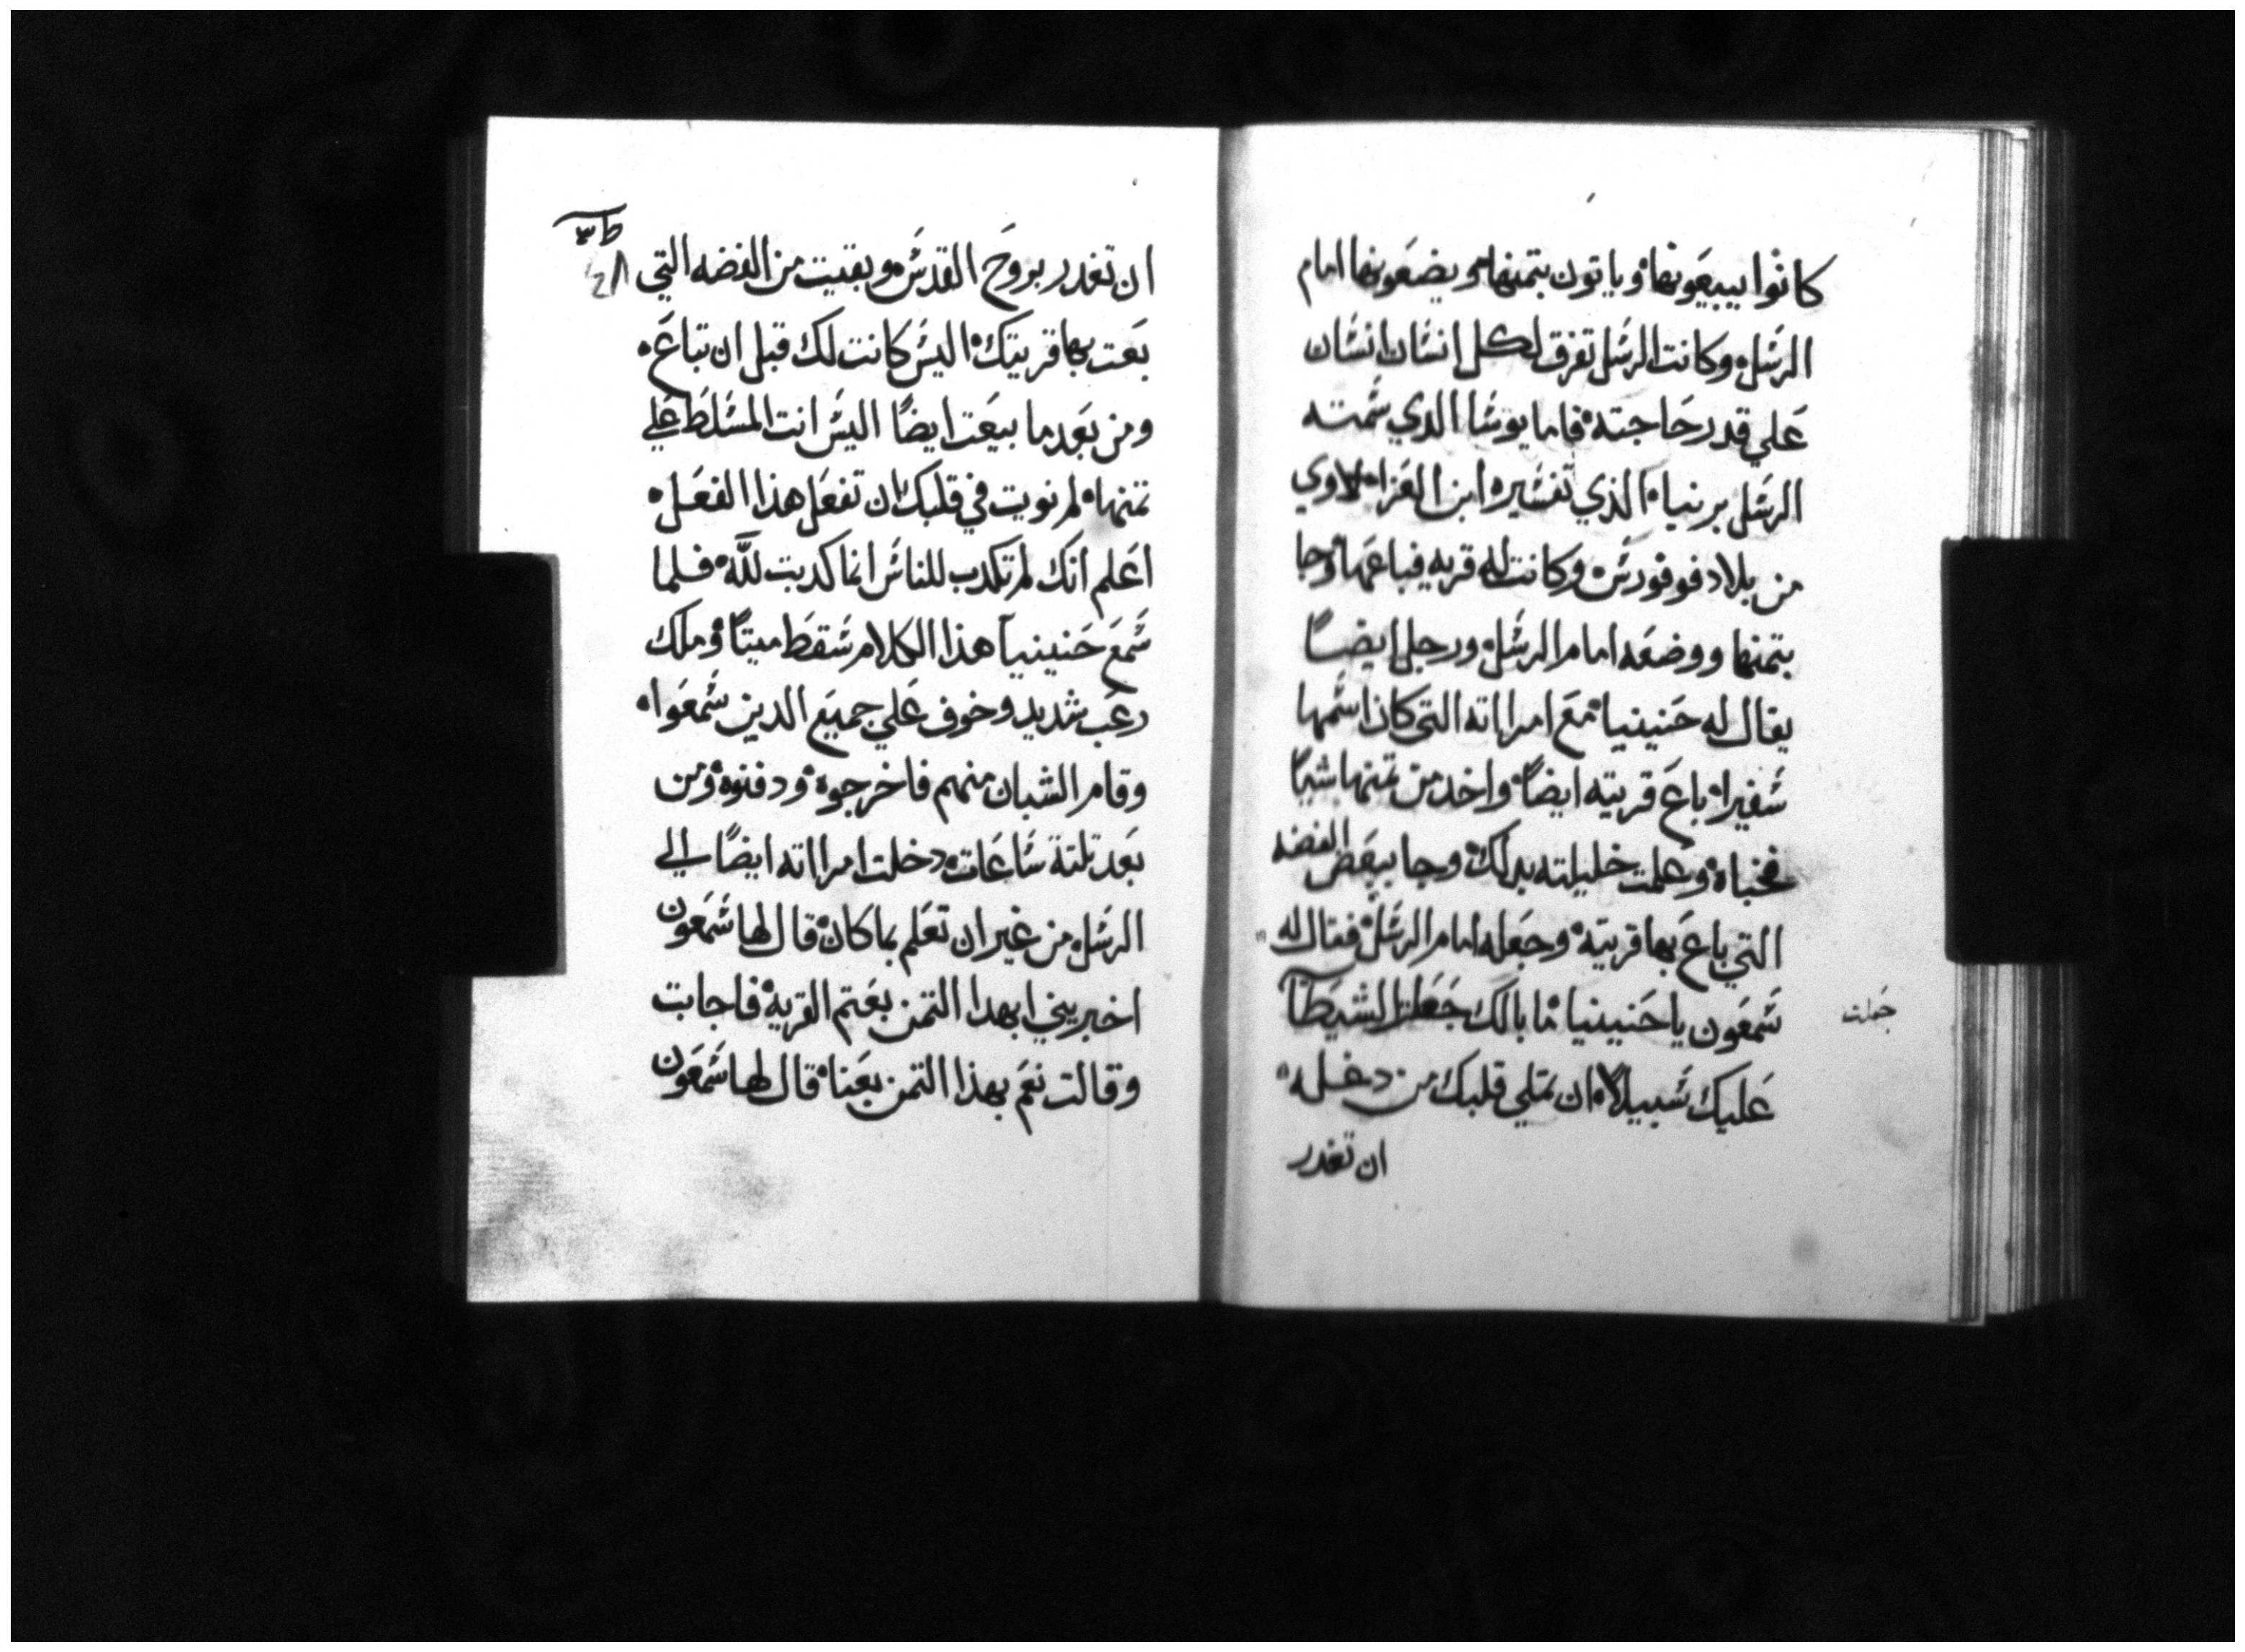 كانوا يبيعونها وياتون بتمنها ويضعونها امام
الرسل وكانت الرسل تفرق لكل انسان انسان
علي قدر حاجته فاما يوسا الدي سمته
الرسل برنبا الذي تفسيره ابن العزا لاوي
من بلاد قوقورس وكانت له قريه فباعها وجا
بتمنها ووضعه امام الرسل ورجل ايضا
يقال له حنينيا مع امراته التي كان اسمها
سفيرا باع قريته ايضا واخد من تمنها شيا
فخباه وعلمت خليلته بدلك وجا ببعض الفضه
التي باع بها قريته وجعله امام الرسل فقال له
سمعون يا حنينيا ما بالك جعلت للشيطان
جعلت
عليك سبيلا ان يمتلي قلبك من دغله
ان تغدر
ان تغدر بروح القدس وبقيت من الفضه التي
بعت بها قريتك اليس كانت لك قبل ان تباع
ومن بعد ما بيعت ايضا اليس انت المسلط علي
تمنها لم نويت في قلبك ان تفعل هذا الفعل
اعلم انك لم تكدب للناس انما كدبت لله فلما
سمع حنينيا هذا الكلام سقط ميتا وملك
رعب شديد وخوف علي جميع الدين سمعوا
وقام الشبان منهم فاخرجوه ودفنوه ومن
بعد تلتة ساعات دخلت امراته ايضا الي
الرسل من غير ان تعلم بما كان قال لها سمعون
اخبريني ابهدا التمن بعتم القريه فاجابت
وقالت نعم بهذا التمن بعنا قال لها سمعون